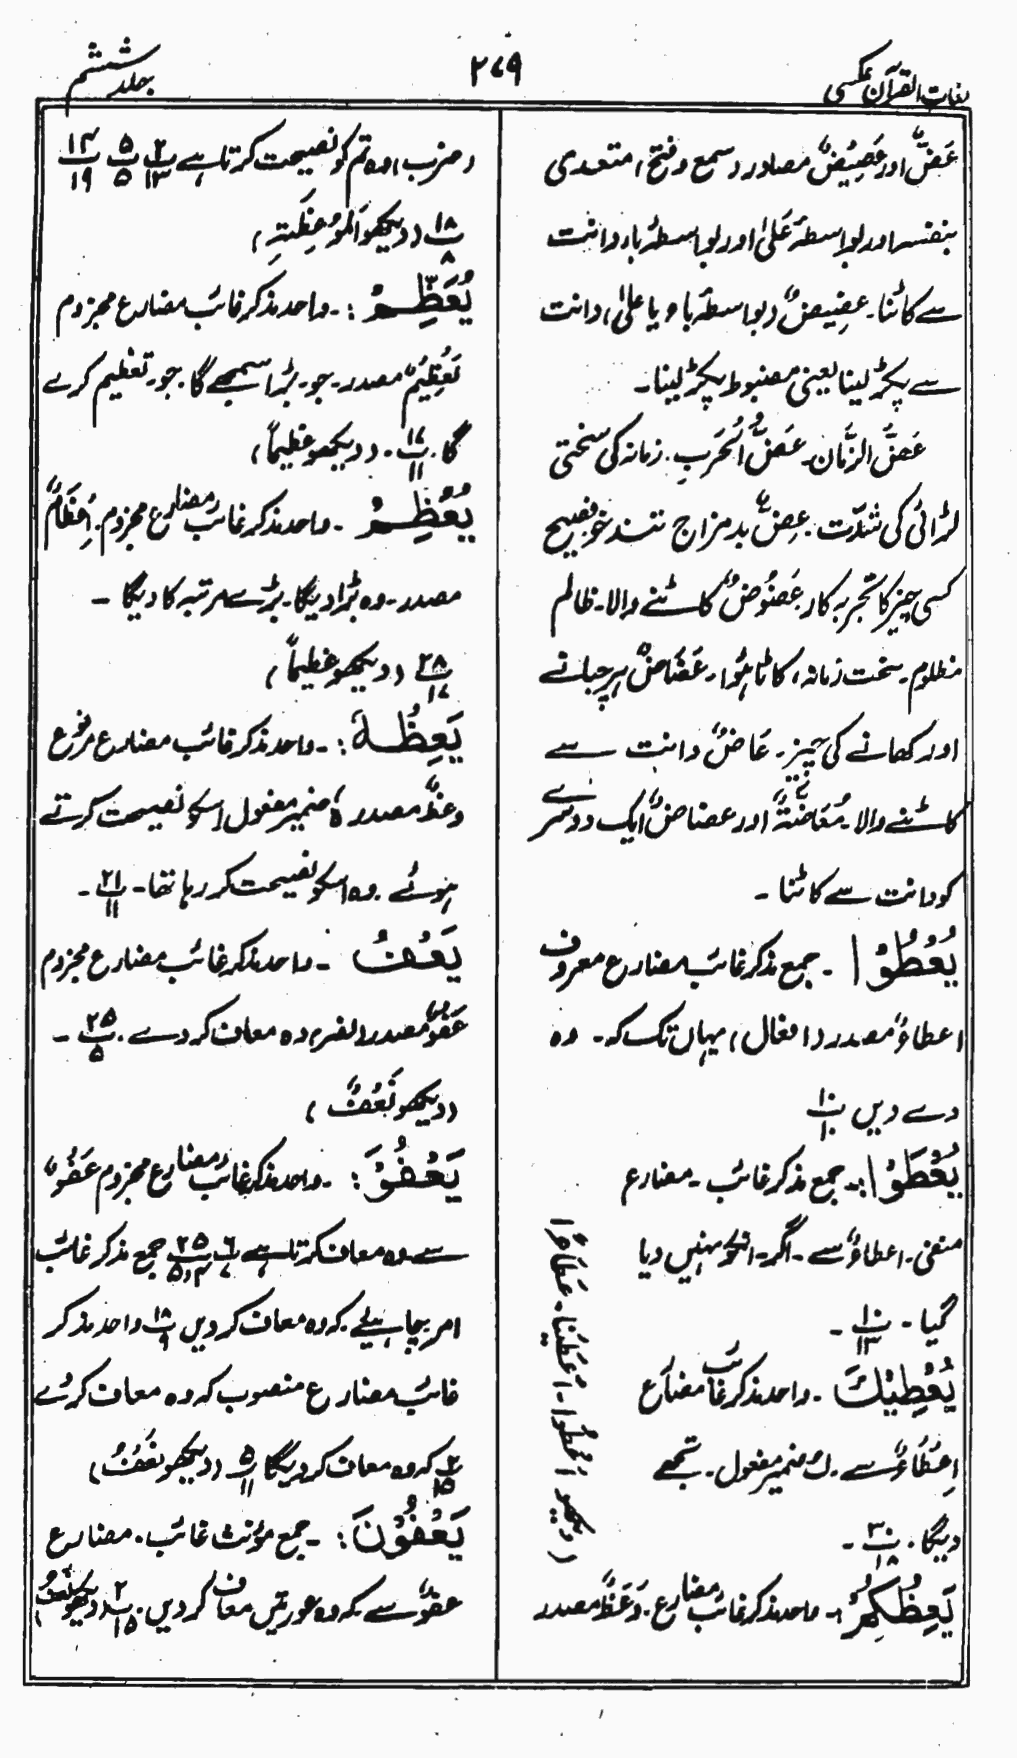 لغات القرآن عکسی
۲۷۹
جلد ششم
عَضٌّ اور عَضِیْضٌ مصادر (سمع و فتح) متعدی
بنفسہ اور بواسطۂ عَلیٰ اور بواسطۂ باء دانت
سے کاٹنا۔ عضیضٌ (بواسطۂ با و یا علیٰ) دانت
سے پکڑ لینا یعنی مضبوط پکڑ لینا۔
عَضُّ الزَّمَانِ۔ عَضُّ الْحَرَبِ۔ زمانہ کی سختی
لڑائی کی شدّت۔ عِضٌّ بدمزاج تندخو فصیح
کسی چیز کا تجربہ کار عَضُوضٌ کاٹنے والا۔ ظالم
مظلوم۔ سخت زمانہ، کاٹا ہُوا۔ عَضَاضٌ
اور کھانے کی چیز۔ عَاضٌّ دانت سے
کاٹنے والا۔ مُعَاضَّۃٌ اور عضاضٌ ایک دوسرے
کو دانت سے کاٹنا۔
یُعْطُوْا۔ جمع مذکر غائب مضارع معروف
اعطاءٌ مصدر (افعال) یہاں تک کہ۔ وہ
دے دیں پ۱۰ ۱۰
یُعْطَوْا:۔ جمع مذکر غائب۔ مضارع
منفی۔ اعطاءٌ سے۔ اگر۔ انکو نہیں دیا
گیا۔ پ۱۰ ۱۳۔
یُعْطِیْکَ۔ واحد مذکر غائب مضارع
اِعْطَاءٌ سے۔ کَ ضمیر مفعول۔ تجھے
دیگا۔ پ۳۰ ۱۸۔
(دیکھو اَعْطُوا۔ اَعْطَیْنَا۔ عَطَاءً)
یَعِظُکُمْ:۔ واحد مذکر غائب مضارع۔ وَعْظٌ مصدر
(ضرب) وہ تم کو نصیحت کرتا ہے پ۲ ۱۳ پ۵ ۵ پ۱۴ ۱۹
پ۱۸ ۸ (دیکھو اَلْمَوْعِظَۃِ)
یُعَظِّمْ:۔ واحد مذکر غائب مضارع مجزوم
تَعْظِیْمٌ مصدر۔ جو۔ بڑا سمجھے گا۔ جو۔ تعظیم کرے
گا۔ پ۱۷ ۱۱۔ (دیکھو عظیماً)
یُعْظِمْ۔ واحد مذکر غائب مضارع مجزوم۔ اِعْظَامٌ
مصدر۔ وہ بڑا دیگا۔ بڑے مرتبہ کا دیگا۔
پ۲۸ ۱۷ (دیکھو عظیماً)
یَعِظُہٗ:۔ واحد مذکر غائب مضارع مرفوع
وعظٌ مصدر ہٗ ضمیر مفعول اسکو نصیحت کرتے
ہوئے۔ وہ اسکو نصیحت کر رہا تھا۔ پ۲۱ ۱۱۔
یَعْفُ۔ واحد مذکر غائب مضارع مجزوم
عَفْوٌ مصدر (نصر) وہ معاف کر دے۔ پ۲۵ ۵۔
(دیکھو نَعْفُ)
یَعْفُوْ:۔ واحد مذکر غائب مضارع مجزوم عَفْوٌ
سے وہ معاف کرتا ہے پ۶ ۷ پ۲۵ ۴و۵ جمع مذکر غائب
امر چاہیے۔ کہ وہ معاف کر دیں پ۱۸ ۹ واحد مذکر
غائب مضارع منصوب کہ وہ معاف کر دے
پ۲ ۱۵ کہ وہ معاف کر دیگا پ۵ ۱۱ (دیکھو نَعْفُ)
یَعْفُوْنَ:۔ جمع مؤنث غائب۔ مضارع
عفوٌ سے کہ وہ عورتیں معاف کر دیں۔ پ۲ ۱۵ (دیکھو نَعْفُ)